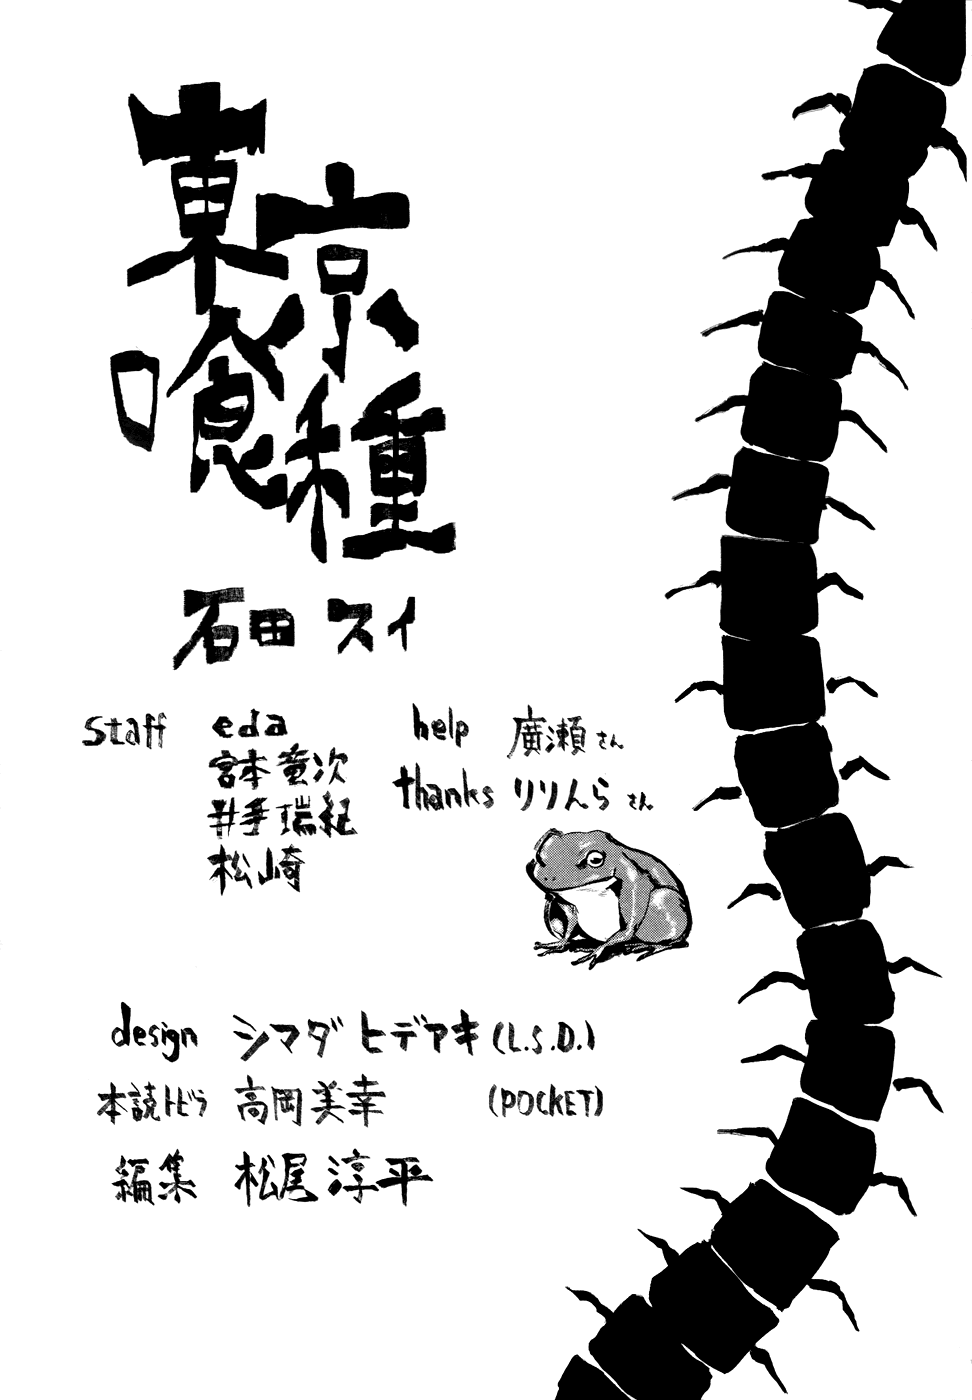 東京
喰種
石田 スイ
staff eda
宮本 竜次
井手 瑞紀
松崎
help 廣瀬 さん
thanks りりんら さん
design シマダ ヒデアキ (L.S.D.)
本読トビラ 高岡 美幸 (POCKET)
編集 松尾 淳平